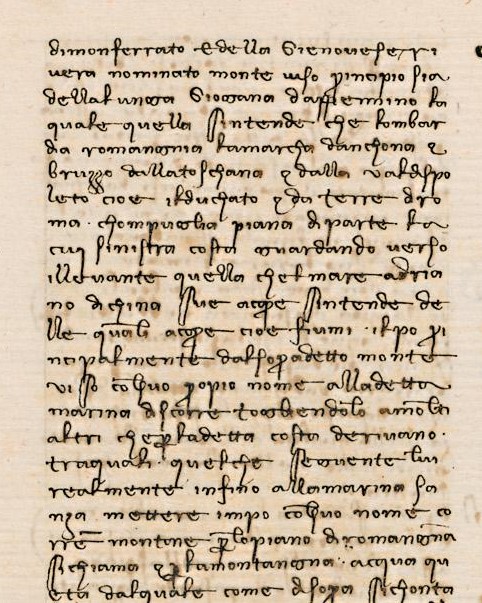 dimonferrato & della Gienovese ri
vera nominato monte viso principio sia
della lunga giogana dappennino la
quale quella sintende che lombar
dia romangnia lamarcha danchona &
bruzzo dallatoschana & dalla valdispo
leto cioe ilduchato & da terre diro
ma chompuglia piana diparte la
cui sinistra costa guardando verso
illevante quella chelmare adria
no dichina sue acque sintende de
lle quali acque cioe fiumi ilpo pri
ncipalmente dalsopradetto monte
viso collsuo propio nome alladetta
marina discorre togliendolo amolti
altri cheperladetta costa derivano
traquali quelche seguente lui
realmente infino allamarina sa
nza mettere impo collsuo nome co
rre montone perlopiano diromangna
sichiama & perlamontangna acqua qu
eta dalquale come disopra sichonta